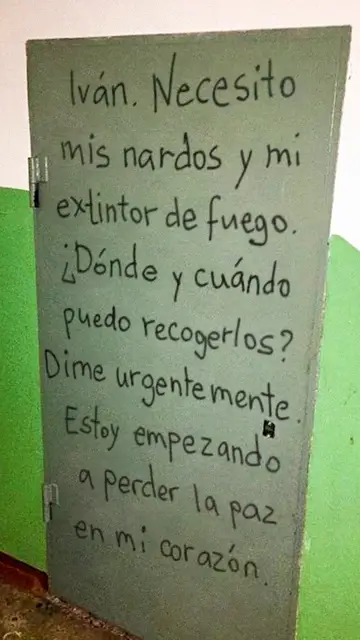 Iván. Necesito
mis nardos y mi
extintor de fuego.
¿Dónde y cuándo
puedo recogerlos?
Dime urgentemente.
Estoy empezando
a perder la paz
en mi corazón.